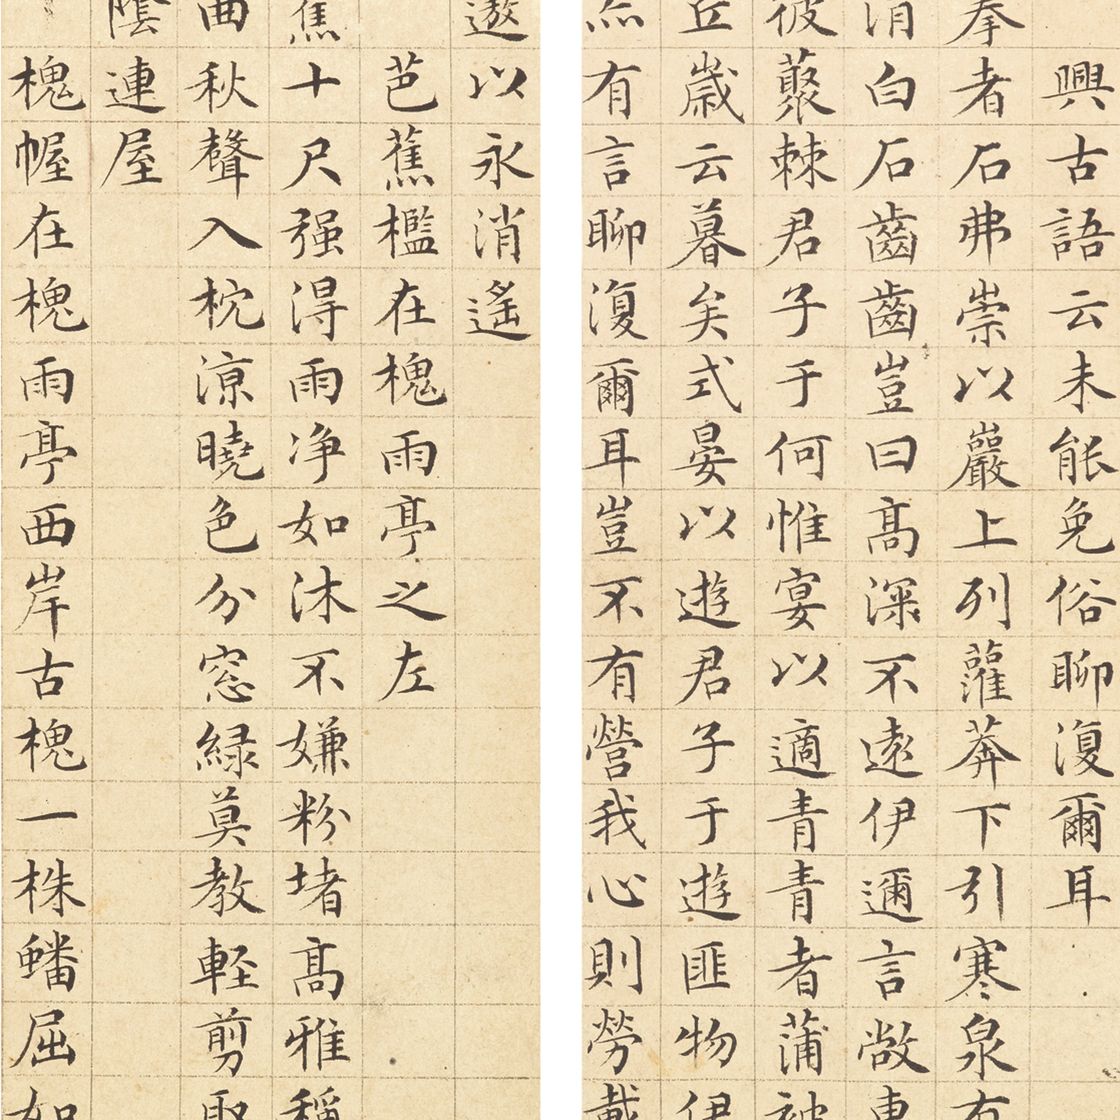 興古語云未能免俗聊復爾耳
者石弗崇以巖上列灌莽下引寒泉
白石齒齒豈曰高深不遠伊邇言敞
彼藂棘君子于何惟宴以適青青者蒲被
丘歲云暮矣式晏以遊君子于遊匪物伊
有言聊復爾耳豈不有營我心則勞載
遨以永消遙
芭蕉檻在槐雨亭之左
蕉十尺强得雨净如沐不嫌粉堵高雅稱
曲秋聲入枕凉曉色分窓緑莫教軽剪取
蔭連屋
槐幄在槐雨亭西岸古槐一株蟠屈如